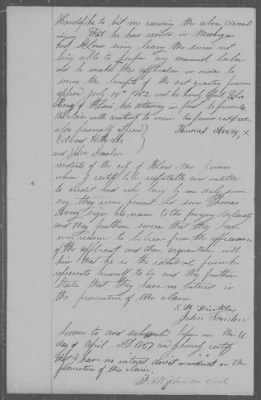 Handspike he hit me receiving the above described
injury That he has resided in Michigan
and Illinois since leaving the service not
being able to perform any manual labor
and he makes this application in order to
secure the benefits of the act granting pensions
approved July 14th 1862 and he hereby appoints John
of his attorney in fact to prosecute
his claim with authority to receive his pension certificate
also personally appeared Thomas Avery X
and John Scanlon
residents of the city of persons
whom I certify to be respectable and entitled
to credit and who being by me duly sworn
say they were present and saw Thomas
Avery sign his name to the foregoing declaration
and they further swear that they have
every reason to believe from the appearance
of the applicant and their acquaintance with
him that he is the identical person he
represents himself to be and they further
State that they have no interest in
the prosecution of this claim
John Scanlon
Sworn to and subscribed before me this 16
day of April AD 1867 and I hereby certify
that I have no interest direct or indirect in the
prosecution of this claim